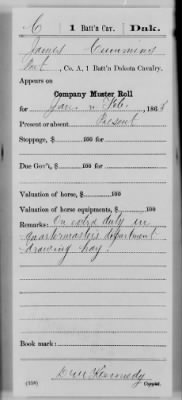 C | 1 Batt'y Cav. | Dak.
James Cummins
Pvt., Co. A, 1 Batt'n Dakota Cavalry.
Appears on
Company Muster Roll
for Jan. & Feb., 1865
Present or absent Present
Stoppage, $ 100 for
Due Gov't, $ 100 for
Valuation of horse, $ 100
Valuation of horse equipments, $ 100
Remarks: On extra duty in
Quartermasters department
drawing hay.
Book mark:
Kennedy
(358) Copyist.